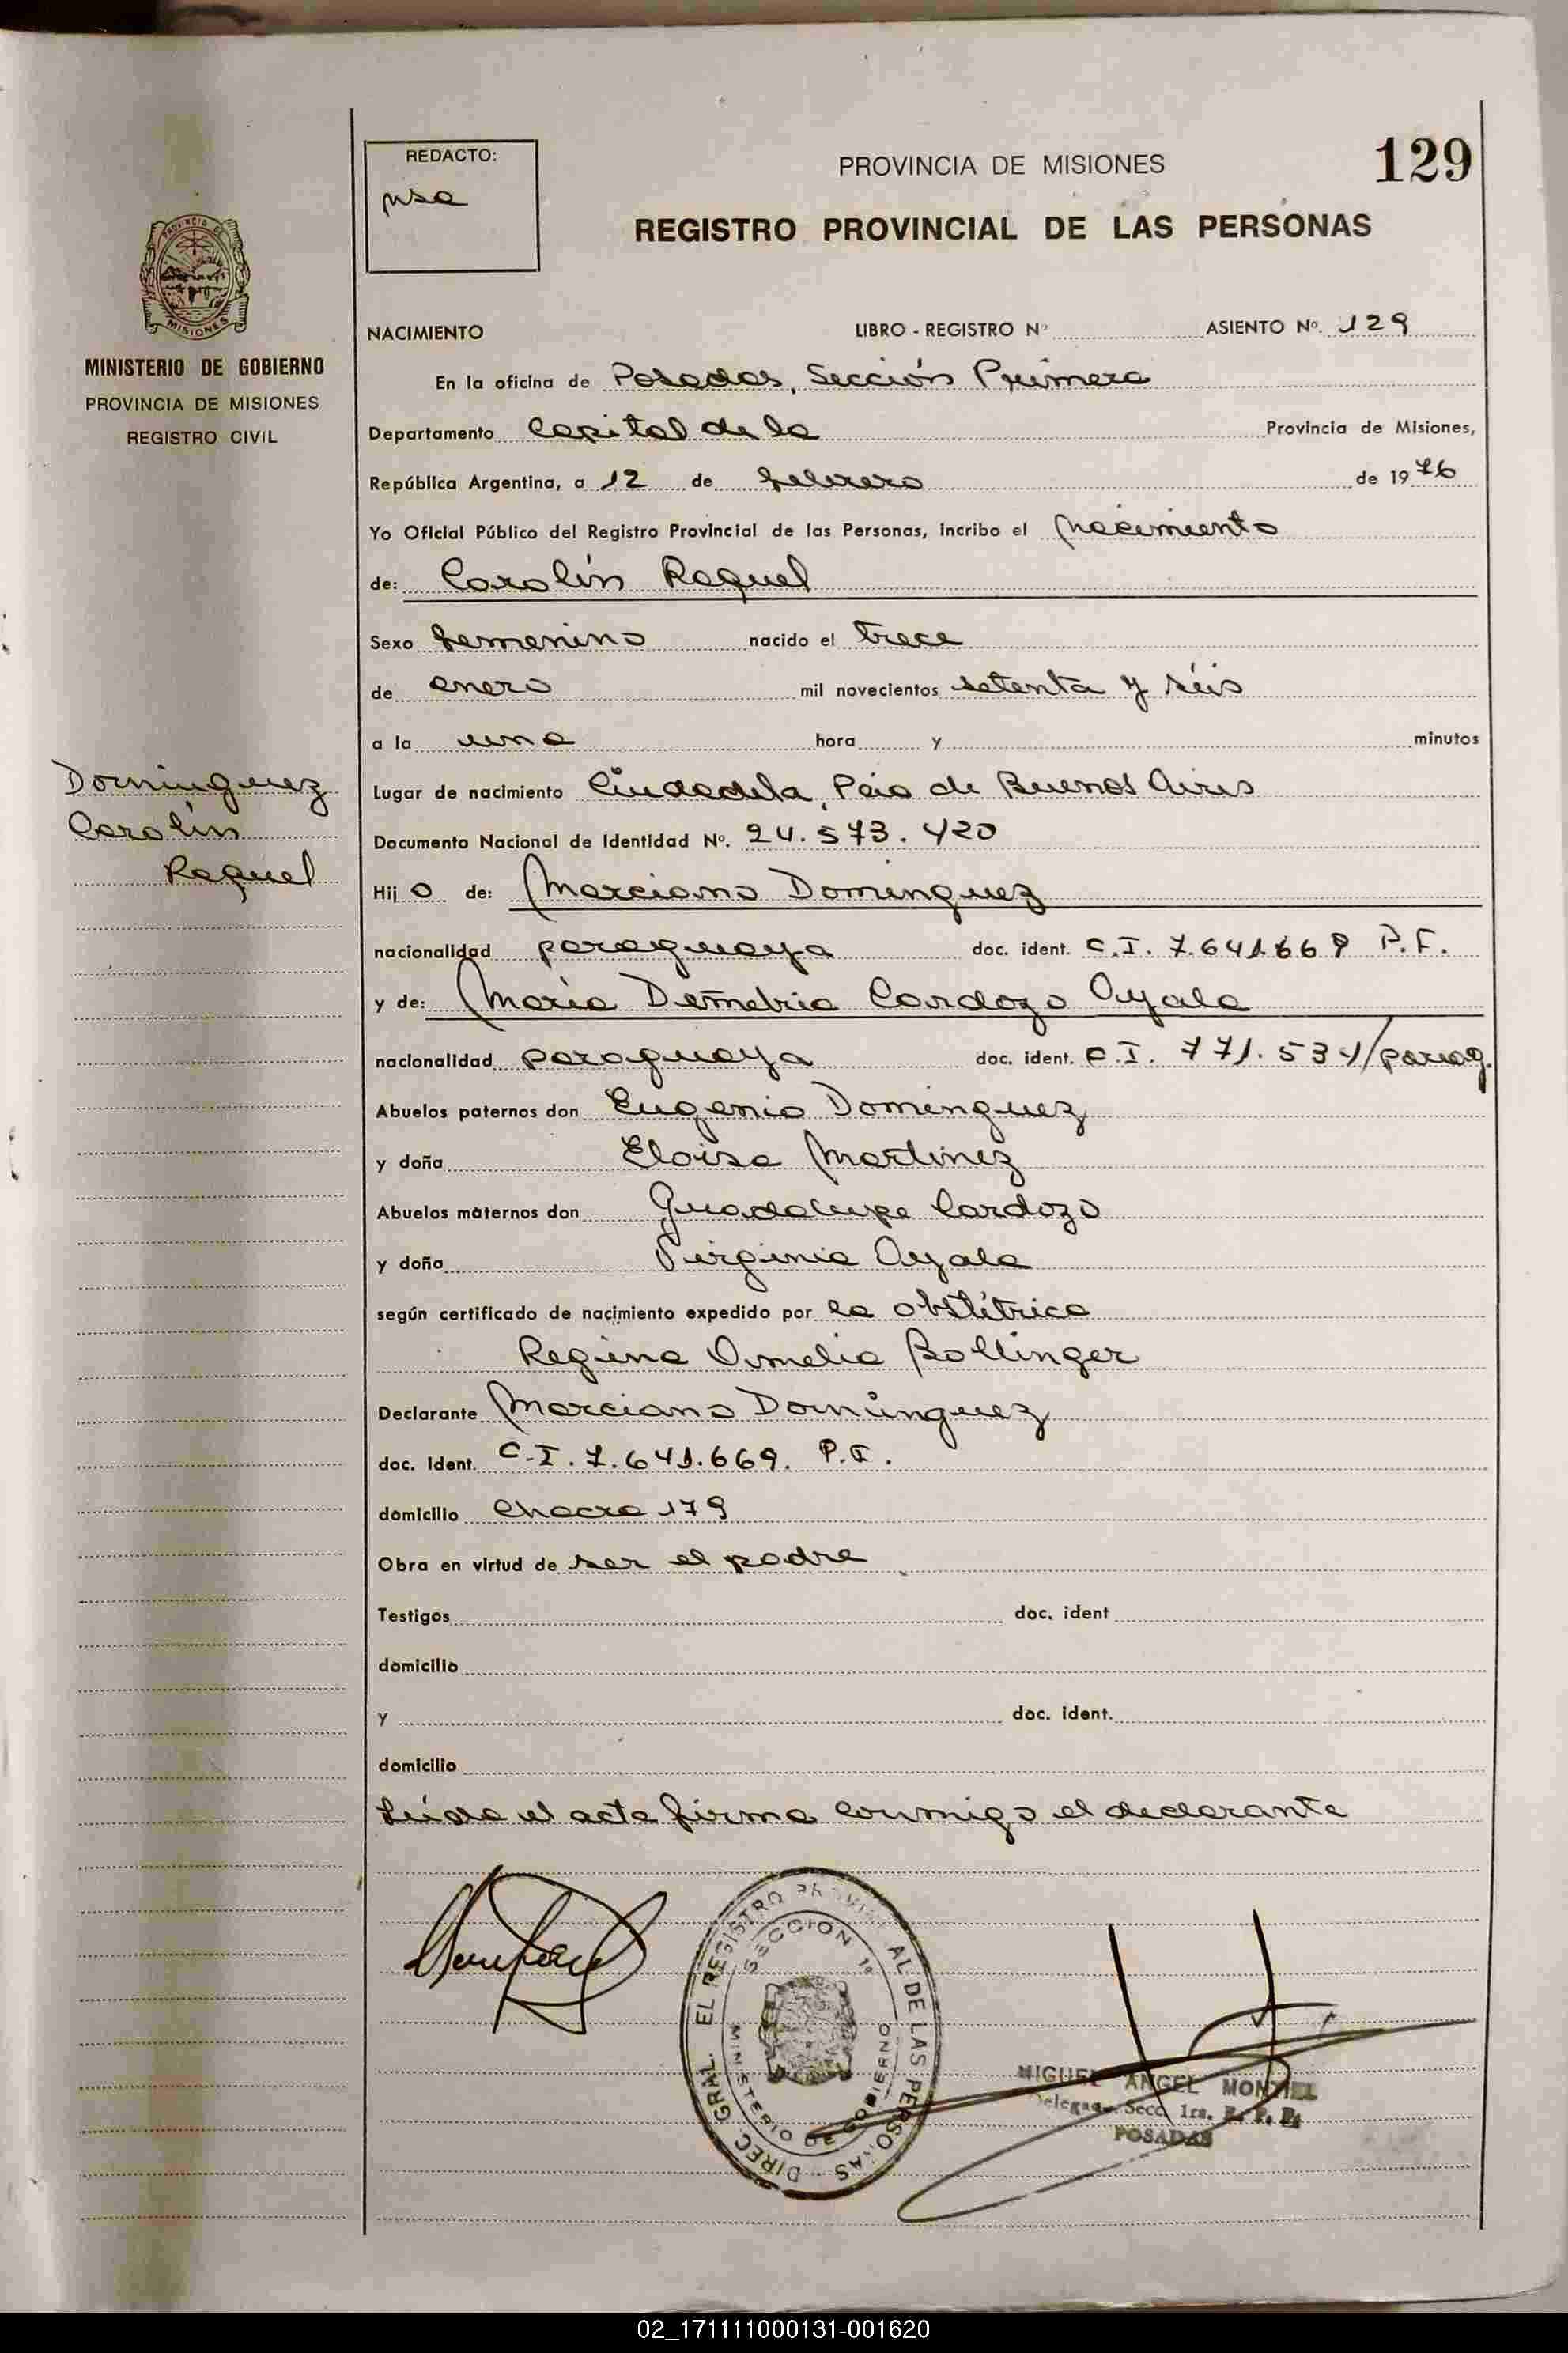 REDACTO:
nsa
PROVINCIA DE MISIONES
129
REGISTRO PROVINCIAL DE LAS PERSONAS
PROVINCIA DE
MISIONES
MINISTERIO DE GOBIERNO
PROVINCIA DE MISIONES
REGISTRO CIVIL
NACIMIENTO LIBRO - REGISTRO Nº ASIENTO Nº. 129
En la oficina de Posadas, Sección Primera
Departamento Capital de la Provincia de Misiones,
República Argentina, a 12 de febrero de 1976
Yo Oficial Público del Registro Provincial de las Personas, incribo el nacimiento
de: Carolín Raquel
Sexo femenino nacido el trece
de enero mil novecientos setenta y séis
a la una hora y minutos
Dominguez
Carolín
Raquel
Lugar de nacimiento Ciudadela, Pcia de Buenos Aires
Documento Nacional de Identidad Nº. 24.573.420
Hij a de: Marciano Dominguez
nacionalidad paraguaya doc. ident. C.I. 7.641.669 P.F.
y de: Maria Demetria Cardozo Ayala
nacionalidad paraguaya doc. ident. C.I. 771.534/parag.
Abuelos paternos don Eugenio Dominguez
y doña Eloisa Martinez
Abuelos maternos don Guadalupe Cardozo
y doña Virginia Ayala
según certificado de nacimiento expedido por la obstétrica
Regina Amelia Bollinger
Declarante Marciano Dominguez
doc. Ident. C.I. 7.641.669. P.F.
domicilio Chacra 179
Obra en virtud de ser el padre
Testigos doc. ident
domicilio
y doc. ident.
domicilio
Leida el acta firma conmigo el declarante
DIREC. GRAL. EL REGISTRO PROVINCIAL DE LAS PERSONAS
SECCION 1ª
MINISTERIO DE GOBIERNO
MIGUEL ANGEL MONTIEL
Delegado Secc. 1ra. R. P. P.
POSADAS
02_171111000131-001620